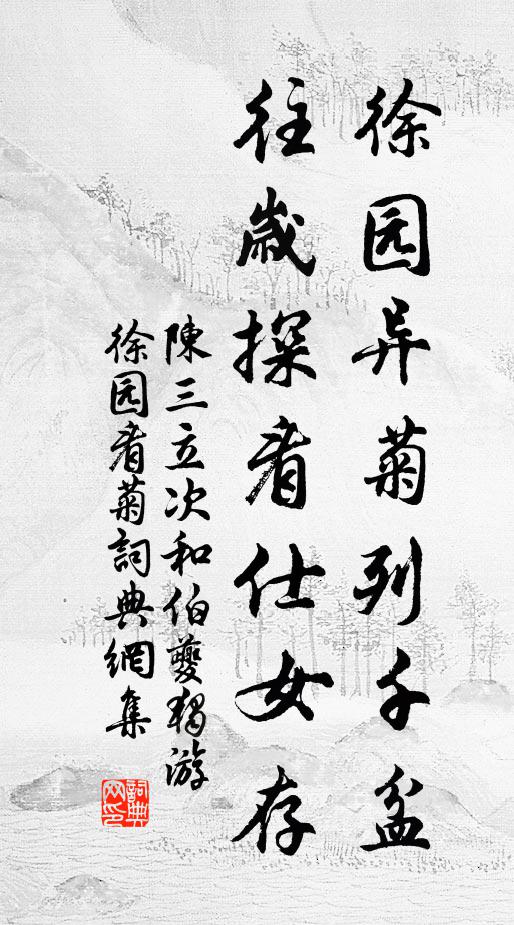 徐园异菊列千盆
往歲探看仕女存
陳三立次和伯夔獨游
徐园看菊詞典網集
詞典網印